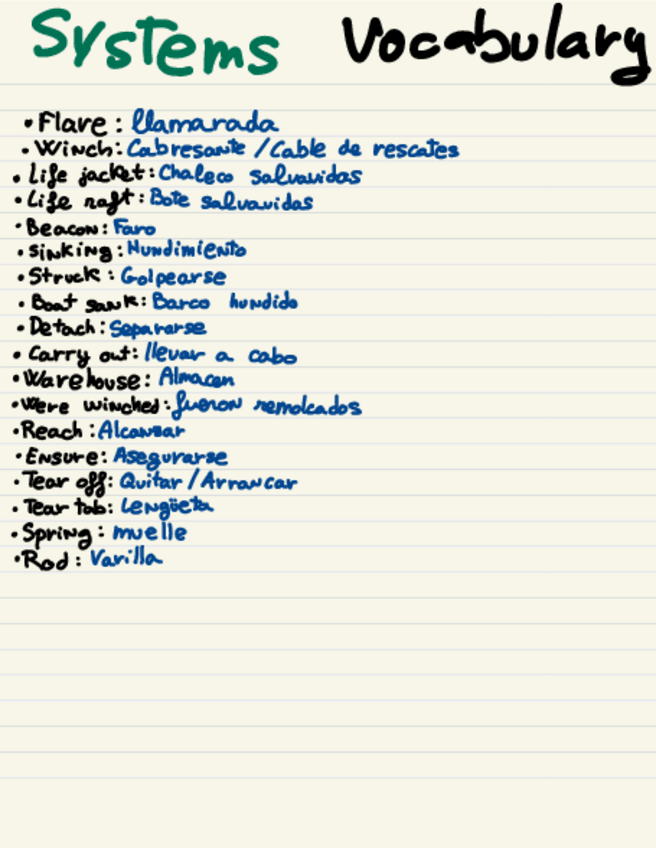 Systems Vocabulary
• Flare: llamarada
• Winch: Cabresante / Cable de rescates
• Life jacket: Chaleco salvavidas
• Life raft: Bote salvavidas
• Beacon: Faro
• Sinking: Hundimiento
• Struck: Golpearse
• Boat sank: Barco hundido
• Detach: Separarse
• Carry out: llevar a cabo
• Warehouse: Almacen
• Were winched: fueron remolcados
• Reach: Alcansar
• Ensure: Asegurarse
• Tear off: Quitar / Arrancar
• Tear tab: Lengüeta
• Spring: muelle
• Rod: Varilla